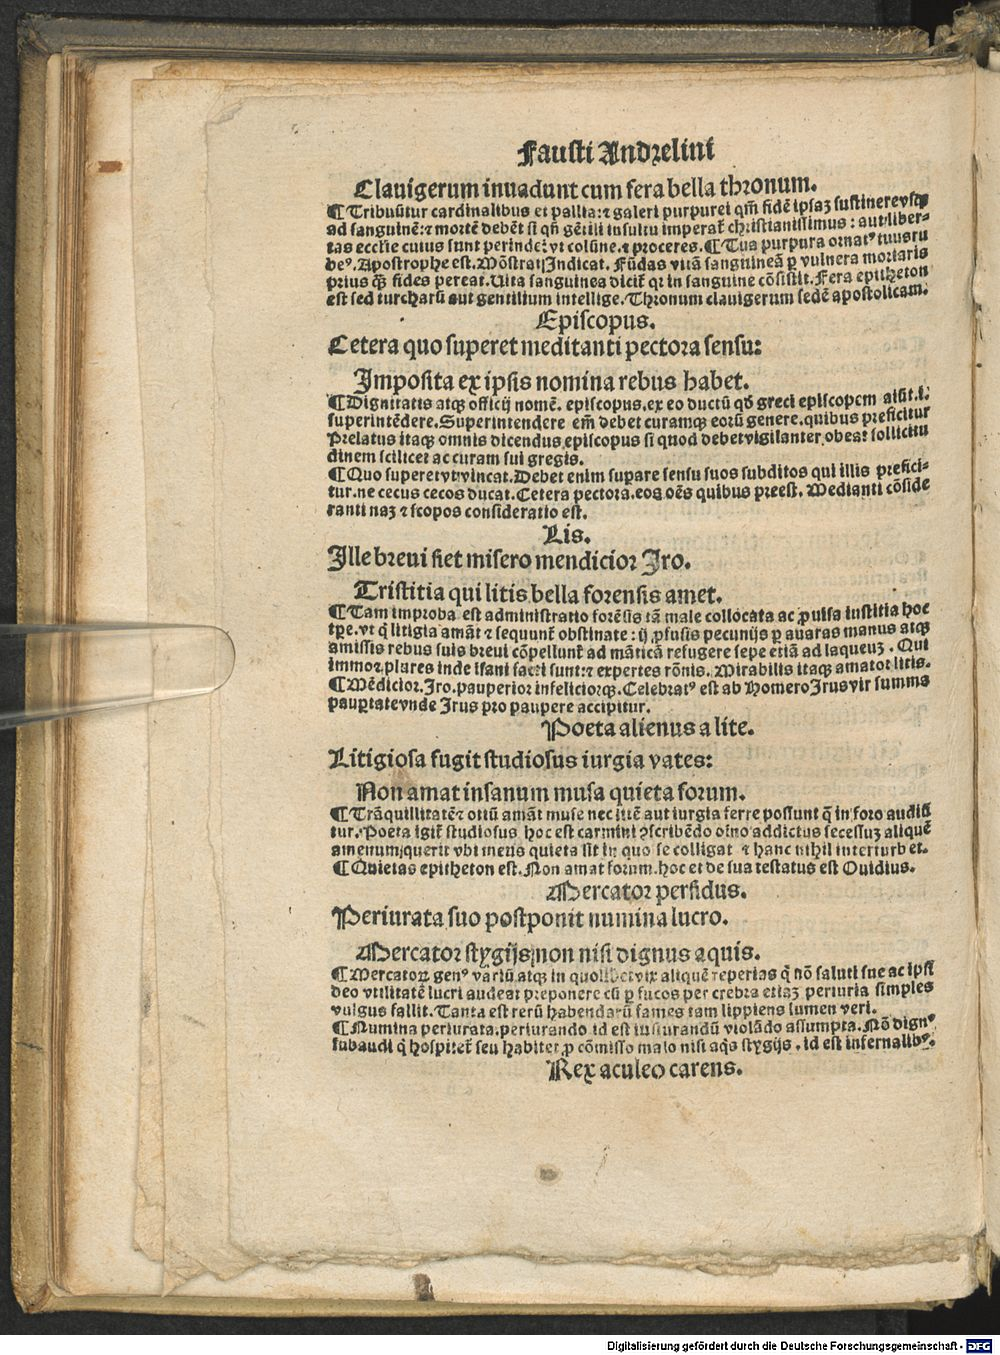 Fausti Andrelini
Clauigerum inuadunt cum fera bella thronum.
¶Tribuũtur cardinalibus et pallia: ⁊ galeri purpurei qm̃ fidẽ ipsaȝ sustinere vsqꝫ
ad sanguinẽ: ⁊ mortẽ debẽt si qñ gẽtili insultu imperat̃ christianissimus: aut liber-
tas ecclie cuius sunt perinde: vt colũne. ⁊ proceres. ¶Tua purpura ornatꝰ tuus ru
beꝰ. Apostrophe est. Mõstrat Indicat. Fũdas vitã sanguineã ꝑ vulnera mortaris
prius qꝫ̃ fides pereat. Uita sanguinea dicit̃ qꝛ in sanguine cõsistit. Fera epitheton
est sed turcharũ aut gentilium intellige. Thronum clauigerum sedẽ apostolicam.
Episcopus.
Cetera quo superet meditanti pectora sensu:
Imposita ex ipsis nomina rebus habet.
¶Dignitatis atqꝫ officij nomẽ. episcopus. ex eo ductũ qd̓ greci episcopem aiũt. i.
superintẽdere. Superintendere em̃ debet curamqꝫ eorũ genere. quibus preficitur
Prelatus itaqꝫ omnis dicendus episcopus si quod debet vigilanter obeat sollicitu
dinem scilicet ac curam sui gregis.
¶Quo superet vt vincat. Debet enim supare sensu suos subditos qui illis prefici-
tur. ne cecus cecos ducat. Cetera pectora. eos oẽs quibus preest. Medianti cõside
ranti naȝ ⁊ scopos consideratio est.
Lis.
Ille breui fiet misero mendicior Iro.
Tristitia qui litis bella forensis amet.
¶Tam improba est administratio forẽsis tã male collocata ac ꝓuisa iustitia hoc
tpe. vt q̃ litigia amãt ⁊ sequunt̃ obstinate: ij ꝓfusis pecunijs ꝑ auaras manus atqꝫ
amissis rebus suis breui cõpellunt̃ ad mãticã refugere sepe etiã ad laqueuȝ. Qui
immor plares inde isani facti sunt: ⁊ expertes rõnis. Mirabilis itaqꝫ amator litis.
¶Mẽdicior. Iro. pauperior infeliciorqꝫ. Celebratꝰ est ab Homero Irus vir summa
pauꝑtate vnde Irus pro paupere accipitur.
Poeta alienus a lite.
Litigiosa fugit studiosus iurgia vates:
Non amat insanum musa quieta forum.
¶Trãquillitatẽ ⁊ otiũ amãt muse nec litẽ aut iurgia ferre possunt q̃ in foro audiũ
tur. Poeta igit̃ studiosus hoc est carmini ꝯscribẽdo oĩno addictus secessuȝ aliquẽ
amenum querit vbi mens quieta sit in quo se colligat ⁊ hanc nihil interturbet.
¶Quietas epitheton est. Non amat forum. hoc et de sua testatus est Ouidius.
Mercator perfidus.
Periurata suo postponit numina lucro.
Mercator stygijs non nisi dignus aquis.
¶Mercatoꝝ genꝰ variũ atqꝫ in quolibet vix aliquẽ reperias q̃ nõ saluti sue ac ipsi
deo vtilitatẽ lucri audeat preponere cũ ꝑ fucos per crebra etiaȝ periuria simples
vulgus fallit. Tanta est rerũ habendarũ fames tam lippiens lumen veri.
¶Numina periurata. periurando id est iusiurandũ violãdo assumpta. Nõ dignꝰ
subaudi q̃ hospitet̃ seu habitet ꝓ cõmisso malo nisi aq̃s stygijs. id est infernalibꝰ.
Rex aculeo carens.
Digitalisierung gefördert durch die Deutsche Forschungsgemeinschaft - DFG